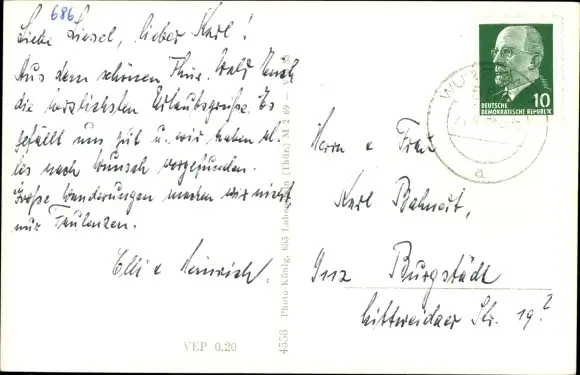 686
Liebe Liesel, lieber Karl!
Aus dem schönen Thür. Wald Euch
die herzlichsten Urlaubsgrüße. Es
gefällt uns gut u. wir haben al-
les nach Wunsch vorgefunden.
Große Wanderungen machen wir nicht
nur Faulenzen.
Elli & Heinrich.
VEP 0.20
4558 Photo-König, 685 Lobenstein (Thür.) M 2 69
DEUTSCHE 10
DEMOKRATISCHE REPUBLIK
a
Herrn & Frau
Karl Bahnert,
Burgstädt
Mittweidaer Str. 19?